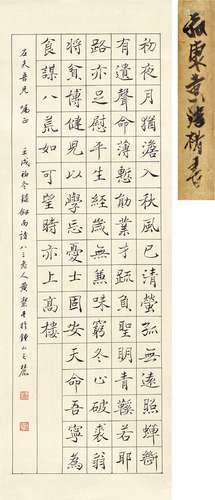 初夜月猶澹入秋風已清螢孤無遠照蟬斷
有遺聲命薄慙勛業才疏負聖明青鞵若耶
路亦足慰平生幾歲無兼味窮冬止破裘翁
將貧博健兒以學忘憂士固安天命吾寧為
食謀八荒如可望時亦上高樓
吾兄 正 壬戌初冬錄劍南詩八二老人黃 於鍾山之麓
東黃 楷書